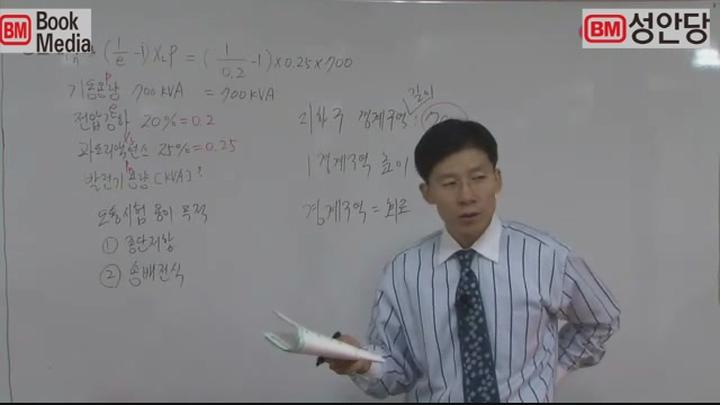 BM Book Media
BM 성안당
(1/e - 1) X_L P = (1/0.2 - 1) × 0.25 × 700
기동용량 700 kVA = 700 kVA
P
전압강하 20% = 0.2
e
과도리액턴스 25% = 0.25
X_L
발전기용량 [kVA] ?
도통시험 용이 목적
① 종단저항
② 송배전식
길이
지하구 경계구역 :
1경계구역 높이
경계구역 = 회로